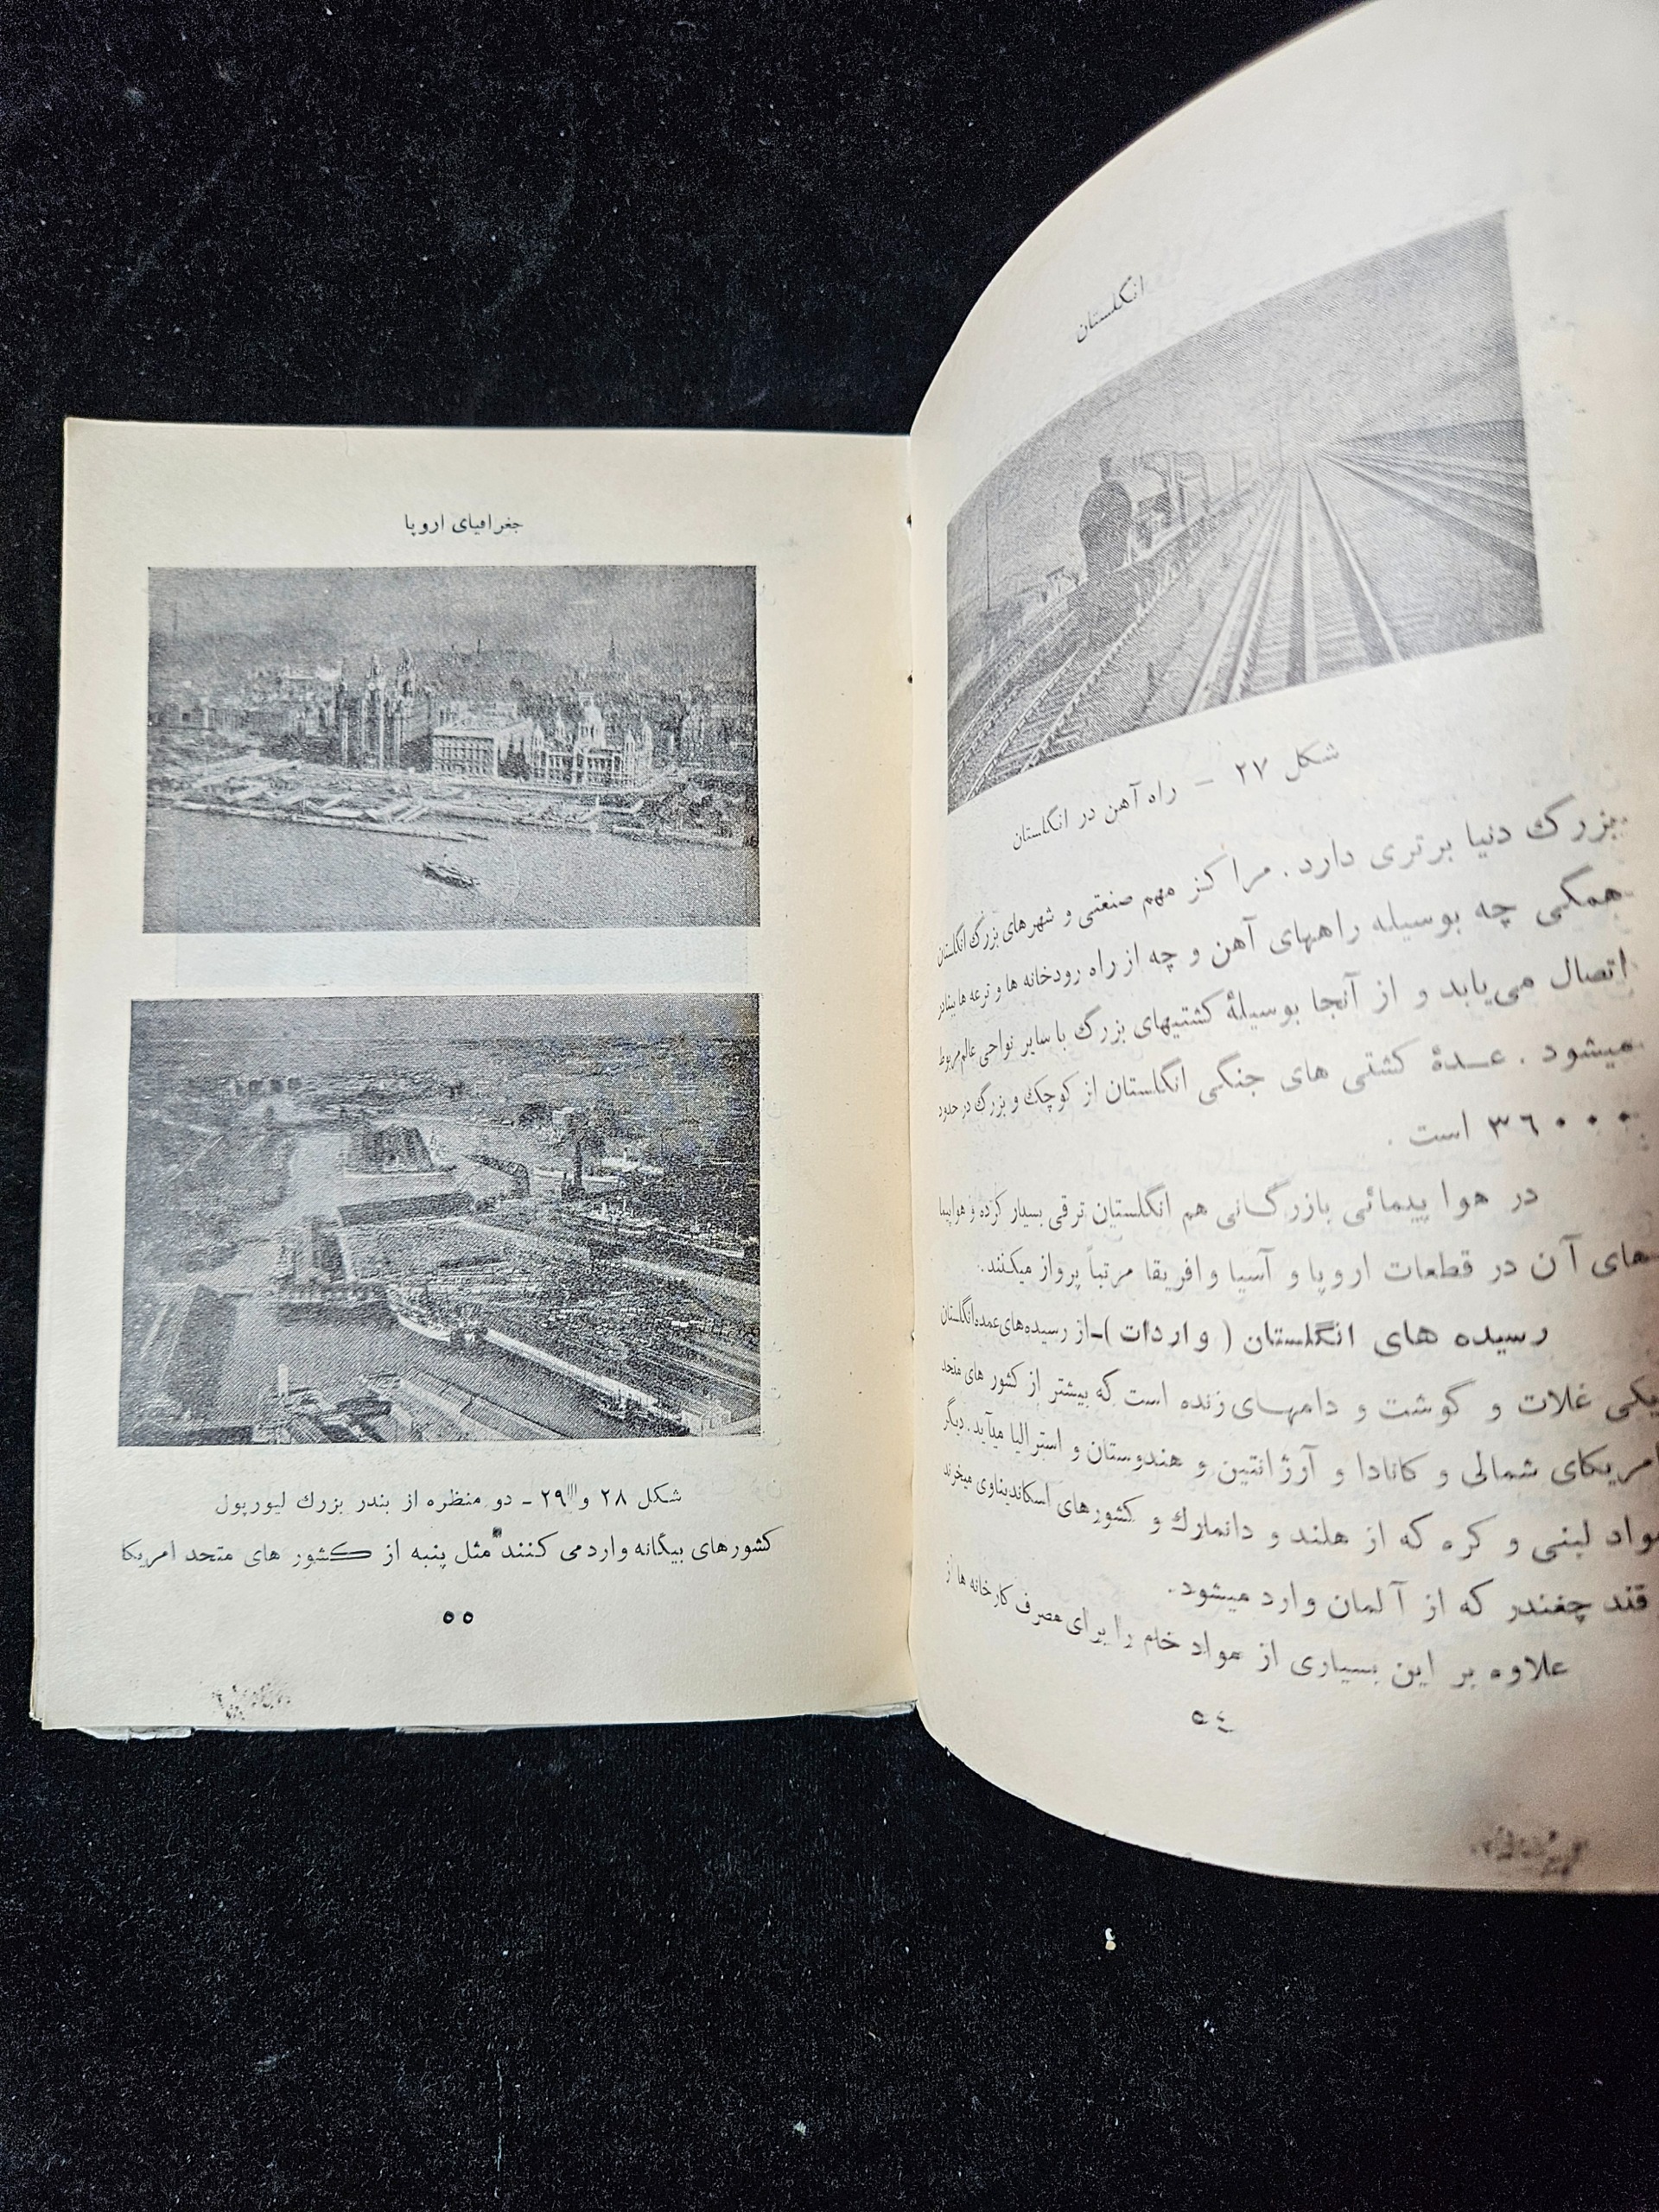 انگلستان
شکل ۲۷ - راه آهن در انگلستان
بزرگ دنیا برتری دارد. مراکز مهم صنعتی و شهرهای بزرگ انگلستان
همگی چه بوسیله راههای آهن و چه از راه رودخانه ها و ترعه ها ببنادر
اتصال می‌یابد و از آنجا بوسیلهٔ کشتیهای بزرگ با سایر نواحی عالم مربوط
میشود. عدهٔ کشتی های جنگی انگلستان از کوچک و بزرگ در حدود
۳۶۰۰۰ است.
در هوا پیمائی بازرگانی هم انگلستان ترقی بسیار کرده و هواپیما
های آن در قطعات اروپا و آسیا و افریقا مرتباً پرواز میکنند.
رسیده های انگلستان (واردات)-از رسیده‌های عمده انگلستان
یکی غلات و گوشت و دامهای زنده است که بیشتر از کشور های متحد
امریکای شمالی و کانادا و آرژانتین و هندوستان و استرالیا میآید. دیگر
مواد لبنی و کره که از هلند و دانمارک و کشورهای اسکاندیناوی میخرند
قند چغندر که از آلمان وارد میشود.
علاوه بر این بسیاری از مواد خام را برای مصرف کارخانه ها از
۵۴
جغرافیای اروپا
شکل ۲۸ و ۲۹ - دو منظره از بندر بزرگ لیورپول
کشورهای بیگانه وارد می کنند مثل پنبه از کشور های متحد امریکا
۵۵